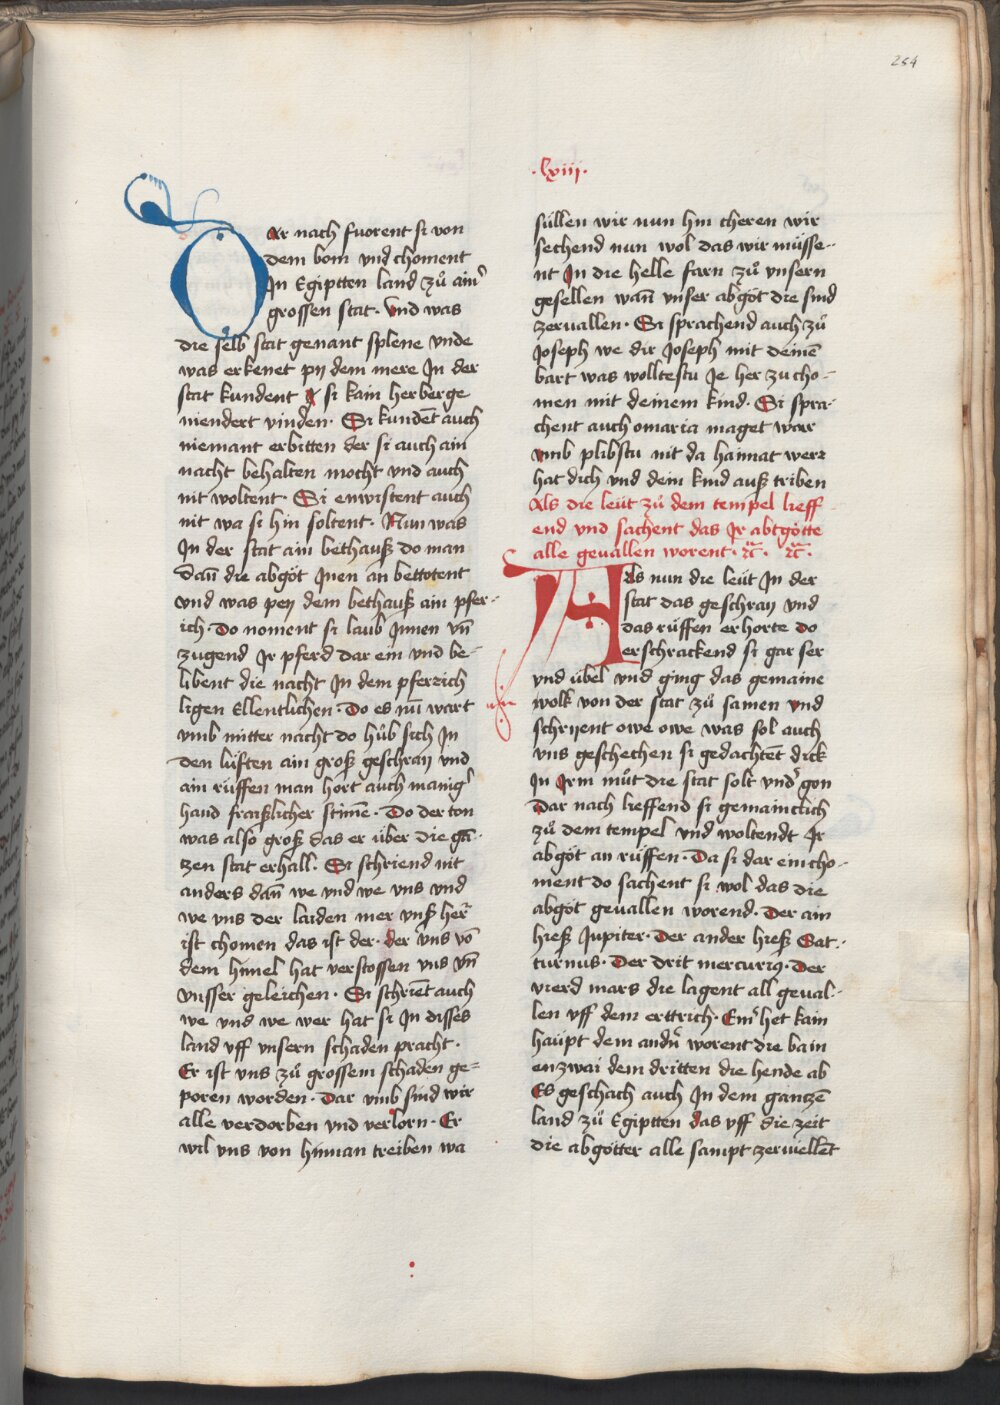 254
·lxiii·
Dar nach fuorent si von
dem bom vnd choment
In Egiptten land zů ainr
grossen stat· Vnd was
die selb stat genant splene vnde
was erkenet pij dem mere In der
stat kundent si kain herberge
niendert vinden· Si kundēt auch
niemant erbitten der si auch ain
nacht behalten mocht vnd auch
nit woltent· Si enwistent auch
nit wa si hin soltent· Nun was
In der stat ain bethauß do man
dañ die abgöt Inen an bettotent
vnd was peij dem bethauß ain pfer-
ich· Do noment si laub Innen vñ
zugend Ir pferd dar ein vnd be-
libent die nacht In dem pferrich
ligen Ellentlichen· Do es nū wart
vmb mitter nacht do hůb sich In
den lüften ain groß geschraij vnd
ain rüffen man hort auch manigr
hand fraißlicher stim̄e· Do der ton
was also groß das er über die gā-
zen stat erhall· Si schriend nit
anders dañ we vnd we vns vnd
we vns der laiden mer vnser her
ist chomen das ist der· der vns vō
dem himel hat verstossen vns vñ
vnsser geleichen· Si schriēt auch
we vnd we wer hat si In disses
land vff vnsern schaden pracht·
Er ist vns zů grossem schaden ge-
poren worden· Dar vmb sind wir
alle verdorben vnd verlorn· Er
wil vns von hinnan treiben wa
süllen wir nun hin cheren wir
sechend nun wol das wir müsse-
nt In die helle farn zů vnsern
gesellen wañ vnser abgöt die sind
zervallen· Si sprachend auch zů
Joseph we dir Joseph mit deinē
bart was wolltestu Ie her zu cho-
men mit deinem kind· Si spra-
chent auch o maria maget war
vmb plibstu nit da haimat werr
hat dich vnd dein kind auß triben
Als die leüt zů dem tempel lieff
end vnd sachent das Ir abtgötte
alle geuallen worent· ꝛc̄· ꝛc̄·
Als nun die leüt In der
stat das geschraij vnd
das rüffen erhorte do
erschrackend si gar ser
vnd übel vnd ging das gemaine
wolk von der stat zů samen vnd
schrijent owe owe was sol auch
vns geschechen si gedachtēt dick
In Irm můt die stat solt vndr gon
Dar nach lieffend si gemaincklich
zů dem tempel vnd woltendt Ir
abgöt an rüffen· Da si dar ein cho-
ment do sachent si wol das die
abgöt geuallen worend· Der ain
hieß Jupiter· Der ander hieß Sat-
turnus· Der drit mercuriꝰ· Der
vierd mars die lagent all geual-
len vff dem erttrich· Einr het kain
haüpt dem andn̄ worent die bain
enzwai dem dritten die hende ab
Es geschach auch In dem gantzē
land zů Egiptten das vff die zeit
die abgötter alle sampt zeruiellēt